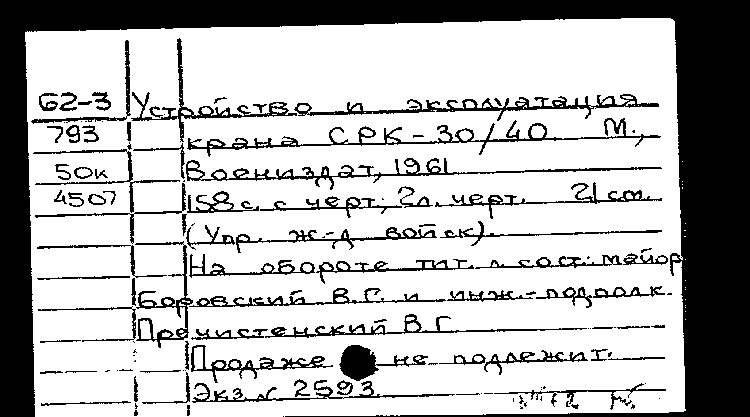 62-3 Устройство и эксплуатация
793 крана СРК-30/40 М.,
50к Воениздат, 1961
4507 158 с. с черт; 2л. черт. 21 см.
(Упр. ж-д войск).
На обороте тит. л сост: майор
Боровский В.Г. и инж.-подполк.
Пречистенский В.Г.
Продаже не подлежит.
Экз № 2593